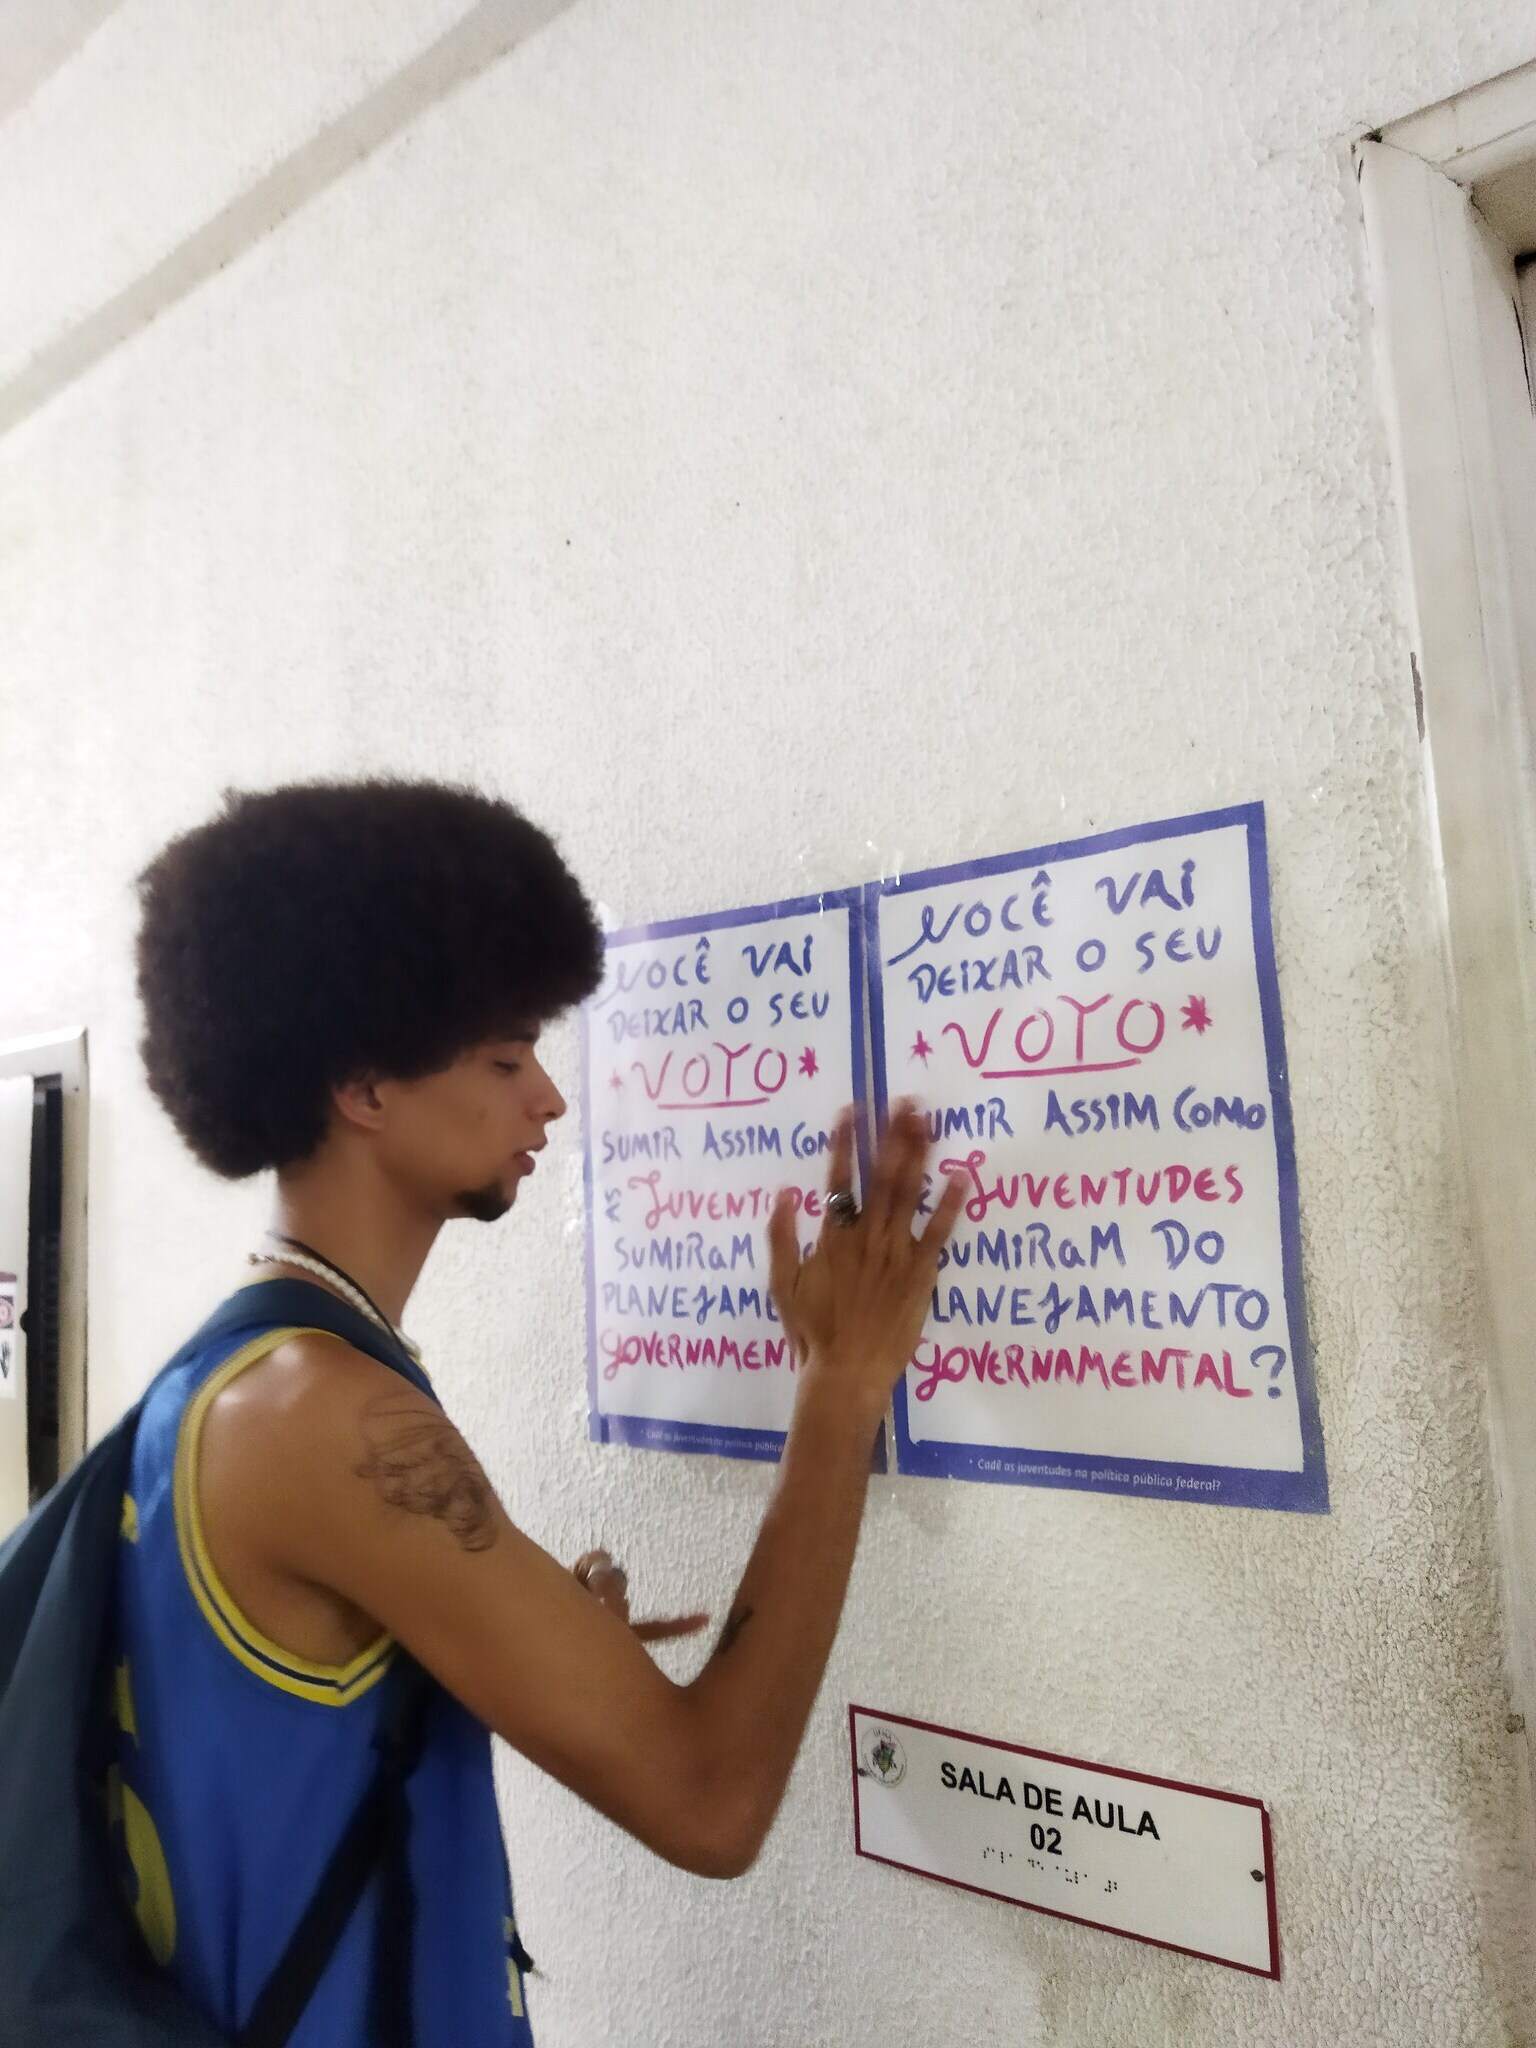 VOCÊ VAI
DEIXAR O SEU
* VOTO *
SUMIR ASSIM
AS JUVENTUDES
SUMIRaM
GOVERNAMENT
* Cadê as juventudes na política pública
VOCÊ VAI
DEIXAR O SEU
* VOTO *
SUMIR ASSIM COMO
JUVENTUDES
SUMIRaM DO
PLANEJAMENTO
GOVERNAMENTAL?
* Cadê as juventudes na política pública federal?
SALA DE AULA
02